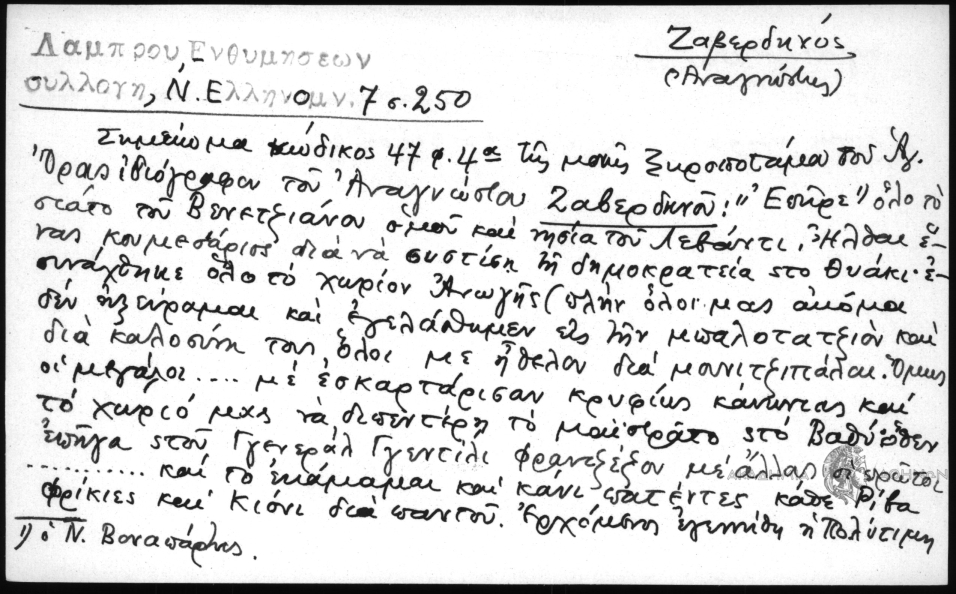 Λαμπρου, Ενθυμησεων
συλλογη, Ν. Ελληνομν. 7 σ. 250
Ζαβερδηνός
(Ἀναγνώστης)
Σημείωμα κώδικος 47 φ. 4α τῆς μονῆς Ξηροποτάμου τοῦ Ἁγ.
Ὄρους ἰδιόγραφον τοῦ Ἀναγνώστου Ζαβερδηνοῦ: "Ἐπῆρε¹⁾ ὅλο τὸ
στάτο τοῦ Βενετζιάνου ὁμοῦ καὶ νησία τοῦ Λεβάντι. Ἦλθαι ἕ-
νας κουμεσάριος διὰ νὰ συστίση τὴ δημοκρατεία στο Θυάκι· ἐ-
συνάχθηκε ὅλο τὸ χωρίον Ἀνωγῆς (πλὴν ὅλοι μας ἀκόμα
δέν ἠξεύραμαι καὶ ἐγελάσθημεν εἰς τὴν μπαλοτατζιὸν καὶ
διὰ καλοσύνη τους ὅλοι με ἤθελον διὰ μουνιτζιπάλαι. Ὅμως
οἱ μεγάλοι .... μὲ ἐσκαρτάρισαν κρυφίως κάνωντας καὶ
τὸ χωριό μας νὰ διπεντέρη τὸ μαϊστράτο στὸ Βαθύ· ὅθεν
ἐπῆγα στοῦ Γγενεράλ Γγεντίλι φραντζέζον με ἄλλους οἱ πρῶτοι
............ καὶ το ἐκάμαμαι καὶ κάνι πατέντες κάθε Ρίβα
φρίκιες καὶ Κιόνι διὰ παντοῦ. Ἐρχόμενος ἐγεννήθη ἡ Πολύτιμη
1) ὁ Ν. Βοναπάρτης.